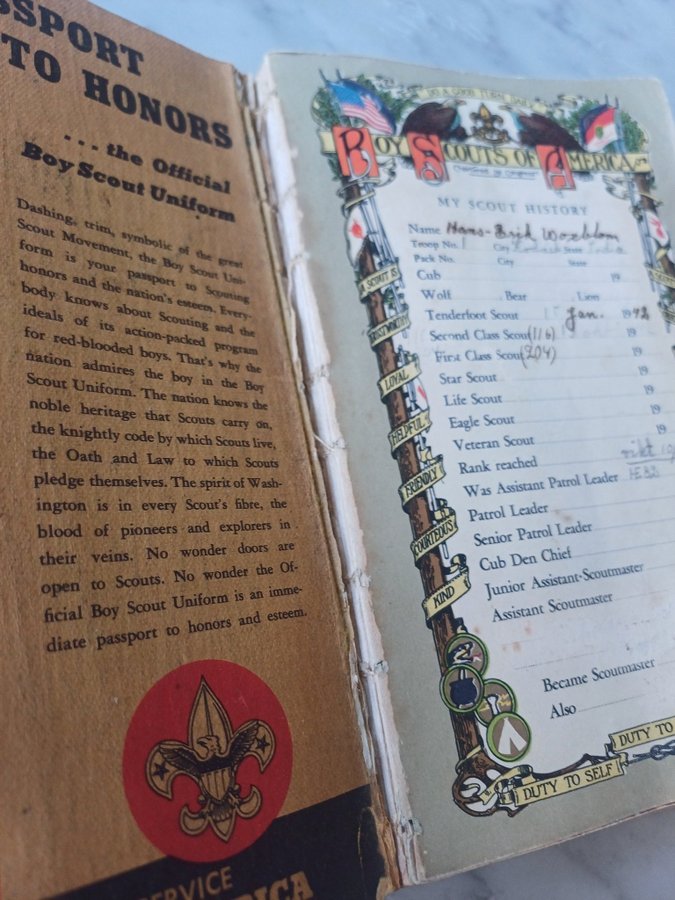 SSPORT
TO HONORS
... the Official
Boy Scout Uniform
Dashing, trim, symbolic of the great
Scout Movement, the Boy Scout Uni-
form is your passport to Scouting
honors and the nation's esteem. Every-
body knows about Scouting and the
ideals of its action-packed program
for red-blooded boys. That's why the
nation admires the boy in the Boy
Scout Uniform. The nation knows the
noble heritage that Scouts carry on,
the knightly code by which Scouts live,
the Oath and Law to which Scouts
pledge themselves. The spirit of Wash-
ington is in every Scout's fibre, the
blood of pioneers and explorers in
their veins. No wonder doors are
open to Scouts. No wonder the Of-
ficial Boy Scout Uniform is an imme-
diate passport to honors and esteem.
SERVICE
DO A GOOD TURN DAILY
BOY SCOUTS OF AMERICA
MY SCOUT HISTORY
Name Hans-Erik
Troop No. 1 City State India
Pack No. City State
Cub 19
Wolf Bear Lion
Tenderfoot Scout Jan. 1942
Second Class Scout (116)
First Class Scout (204)
Star Scout 19
Life Scout 19
Eagle Scout 19
Veteran Scout 19
Rank reached
Was Assistant Patrol Leader
Patrol Leader
Senior Patrol Leader
Cub Den Chief
Junior Assistant-Scoutmaster
Assistant Scoutmaster
Became Scoutmaster
Also
A SCOUT IS
TRUSTWORTHY
LOYAL
HELPFUL
FRIENDLY
COURTEOUS
KIND
DUTY TO SELF
DUTY TO